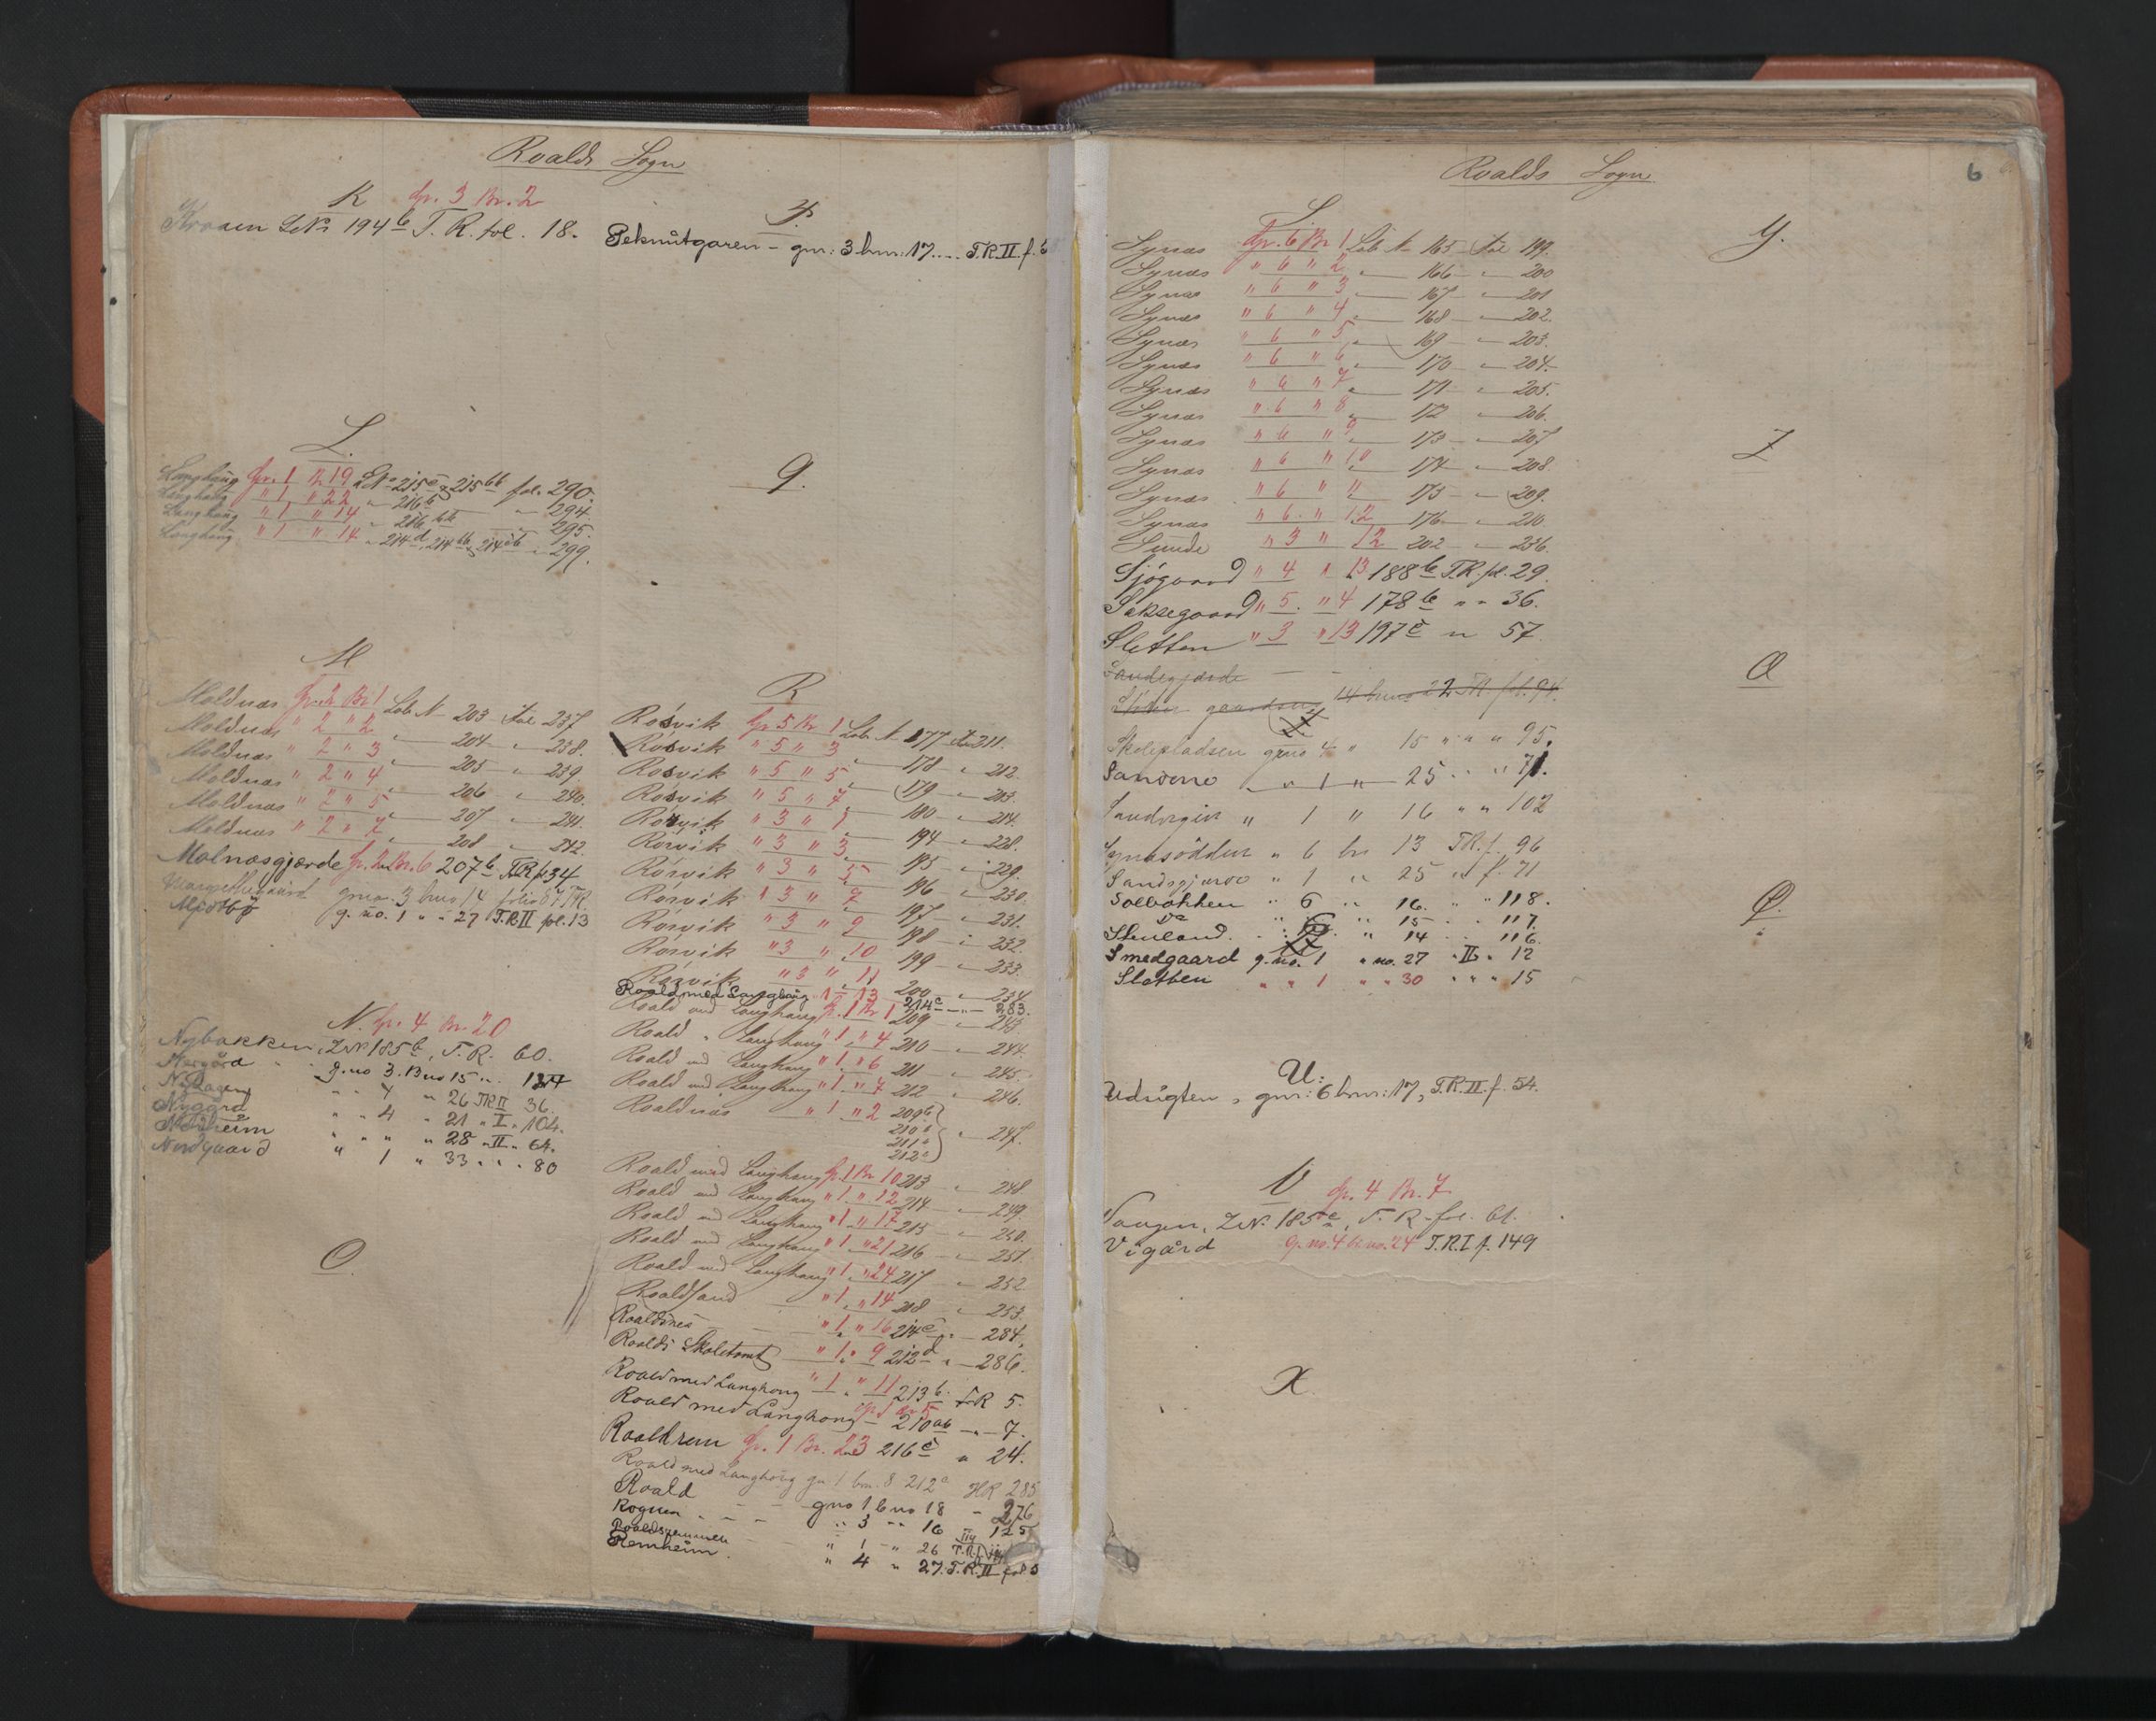 Roalds Sogn
K Gr. 3 Br. 2
Kroaen LNo 194 b T. R. fol. 18.
L.
Langhaug Gr. 1 Br 19 LNo 215 a & 215 bb fol. 290.
Langhaug " 1 " 22 " 216 b " 294.
Langhaug " 1 " 14 " 216 bb " 295.
Langhaug " 1 " 14 " 214 d, 214 bb & 214 db " 299.
M
Moldnæs Gr. 2 Br 1 Løb N 203 Fol 237
Moldnæs " 2 " 2 " 204 " 238.
Moldnæs " 2 " 3 " 205 " 239
Moldnæs " 2 " 4 " 206 " 240.
Moldnæs " 2 " 5 " 207 " 241.
Moldnæs " 2 " 7 " 208 " 242.
Molnæsgjærde Gr. 2 Br. 6 207 b TR f 34
gno. 3 bno 14 folio 87 TR.
Mjøtbø g. no. 1 " " 27 T.R II fol. 13
N. Gr. 4 Br. 20
Nybakken, LN 185 b, T. R. 60.
g. no 3. Bno 15 " 134
" " 4 " 26 TR II 36.
Nygård " " 4 " 21 " I " 104.
" " " " 28 " II " 64.
Nordgaard " 1 " 33 " " " 80
O.
P.
Peknutgaren - gnr: 3 bnr: 17 .... T.R. II. f. 6
Q.
R
Rørvik Gr 5 Br 1 Løb N 177 Fol 211.
Rørvik " 5 " 3 " 178 " 212
Rørvik " 5 " 5 " 179 " 213.
Rørvik " 5 " 7 " 180 " 214.
Rørvik " 3 " 1 " 194 " 228.
Rørvik " 3 " 3 " 195 " 229.
Rørvik " 3 " 5 " 196 " 230.
Rørvik " 3 " 7 " 197 " 231.
Rørvik " 3 " 9 " 198 " 232.
Rørvik " 3 " 10 " 199 " 233.
Rørvik " 3 " 11 " 200 " 234.
Roald med Langhaug " 1 " 13 214 c " 283.
Roald med Langhaug Gr. 1 Br 1 209 " 243.
Roald " Langhaug " 1 " 4 210 " 244.
Roald med Langhaug " 1 " 6 211 " 245.
Roald med Langhaug " 1 " 7 212 " 246.
Roaldnæs " 1 " 2 209 b
210 b
211 b
212 c
" 247.
Roald med Langhaug Gr. 1 Br 10 213 " 248
Roald med Langhaug " 1 " 12 214 " 249
Roald med Langhaug " 1 " 17 215 " 250.
Roald med Langhaug " 1 " 21 216 " 251.
Roald med Langhaug " 1 " 24 217 " 252
Roaldsand " 1 " 14 218 " 253
Roaldsnes " 1 " 16 214 e " 284.
Roalds Skoletomt " 1 " 9 212 d " 286.
Roald med Langhaug " 1 " 11 213 b. TR 5.
Roald med Langhaug Gr 1 Br 5 210 ab " 7.
Roaldsrem Gr. 1 Br. 23 216 c " 24.
Roald med Langhaug gn 1 bn. 8 212 a HR 285
Roald gno 1 bno 18 " 276
Rognen " 3 " " 16 " 125
Roaldsremmen " 1 " 26 T.R.I
Remheim " 4 " 27. T. R. II fol 5
Roalds Sogn
6
S.
Synæs Gr. 6 Br 1 Løb N 165 Fol 199.
Synæs " 6 " 2 " 166 " 200
Synæs " 6 " 3 " 167 " 201
Synæs " 6 " 4 " 168 " 202.
Synæs " 6 " 5 " 169 " 203.
Synæs " 6 " 6 " 170 " 204.
Synæs " 6 " 7 " 171 " 205.
Synæs " 6 " 8 " 172 " 206.
Synæs " 6 " 9 " 173 " 207
Synæs " 6 " 10 " 174 " 208.
Synæs " 6 " 11 " 175 " 209.
Synæs " 6 " 12 176 " 210.
Sunde " 3 " 12 202 " 236.
Sjøgaard " 4 " 13 188 b T.R. fol. 29.
Saksegaard " 5. " 4 178 b " " 36.
Sletten " 3 " 13 197 c " 57.
Sandegjærde
14 bno 22 TR fol. 94
Skolepladsen gno 4 " 15 " " " 95.
Sandene " 1 " 25 " " 71.
Sandvigen " 1 " 16 " " 102
Synæsodden " 6 bn 13 TR. f. 96
Sandsgjærde " 1 " 25 " f. 71
Solbakken " 6 " 16. " " 118.
Do " 6 " 15 " " 117
Stenland. " " 14 " " 116.
Smedgaard g. no. 1 " no. 27 " II " 12
Sletten " " 1 " " 30 " " " 15
U.
Udsigten, gnr: 6 bnr: 17, T.R. II. f. 54.
V Gr. 4 Br. 7
Vangen, LN. 185 c, T. R. fol. 61.
Vigård G. no. 4 br no. 24 T.R.I f. 149
X.
Y.
Z
Æ
Ø.